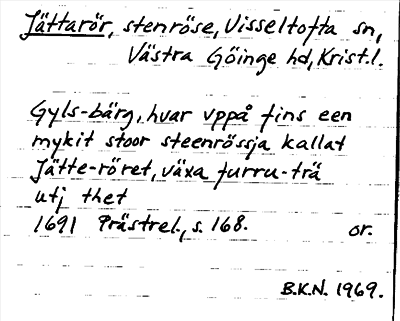 Jättarör, stenröse, Visseltofta sn,
Västra Göinge hd, Krist.l.
Gyls-bärg, huar vppå fins een
mykit stoor steenrössja kallat
Jätte-röret, växa furru-trä
utj thet
1691 Prästrel., s. 168. or.
B.K.N. 1969.